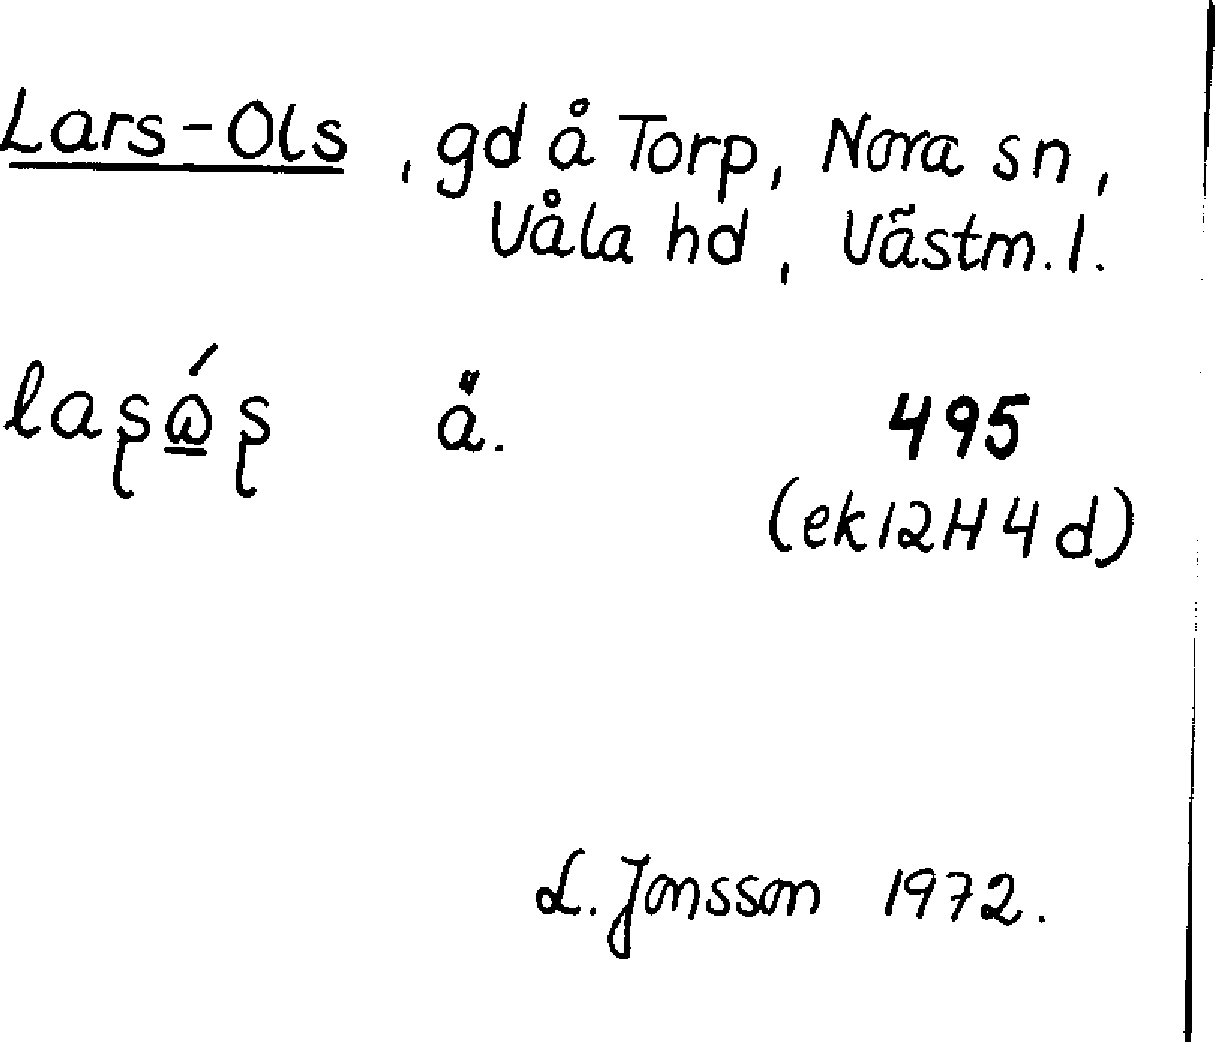 Lars-Ols, gd å Torp, Nora sn,
Våla hd, Västm. l.
laʂɷ̲́ʂ ä. 495
(ek 12H 4d)
L. Jonsson 1972.